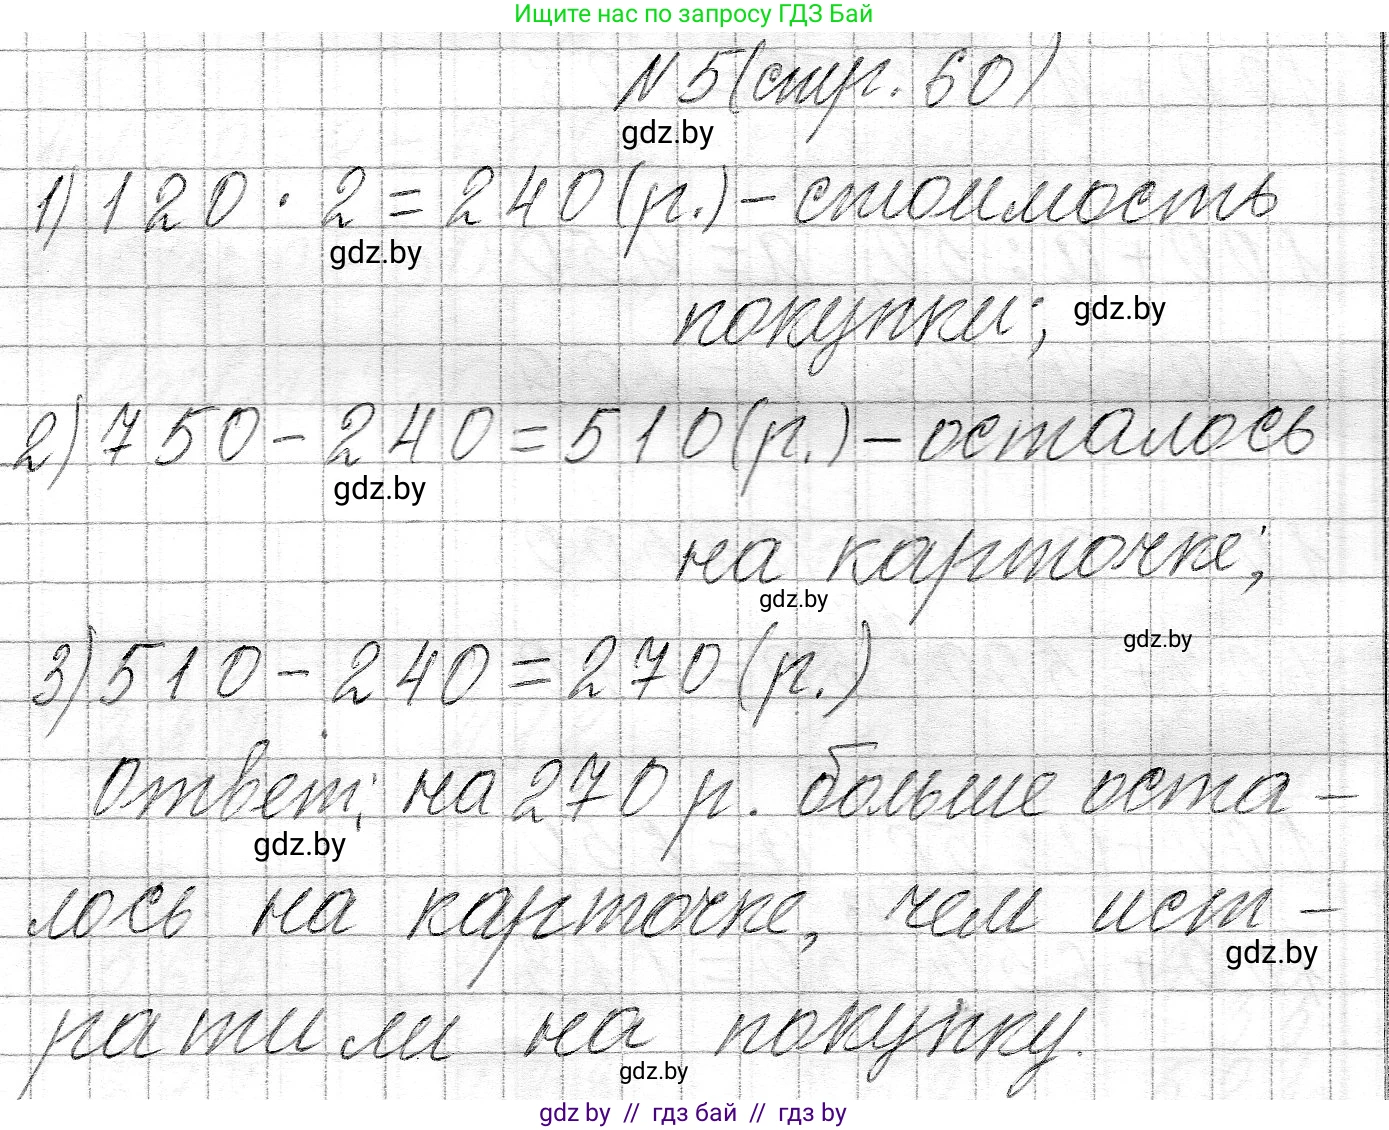 Ищите нас по запросу ГДЗ Бай
№ 5 (стр. 60)
gdz.by
1) 120 · 2 = 240 (р.) – стоимость
gdz.by
покупки; gdz.by
2) 750 – 240 = 510 (р.) – осталось
gdz.by
на карточке;
gdz.by
gdz.by
3) 510 – 240 = 270 (р.)
Ответ: на 270 р. больше оста–
gdz.by
лось на карточке, чем ист–
gdz.by
ратили на покупку.
gdz.by
gdz by // гдз бай // гдз by